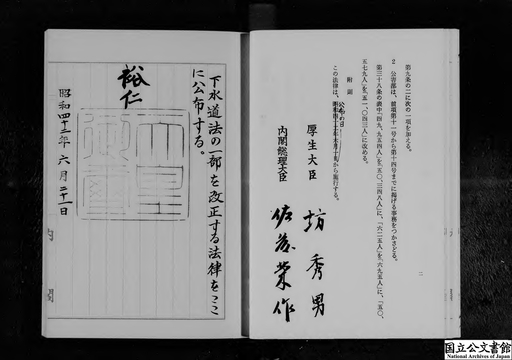 第九条の二に次の一項を加える。
2 公害部は、前項第十一号から第十四号までに掲げる事務をつかさどる。
第三十八条の表中「四九、九五四人」を「五〇、三四八人」に、「六二五人」を「六九五人」に、「五〇、
五七九人」を「五一、〇四三人」に改める。
附 則
この法律は、公布の日から施行する。
厚生大臣 坊秀男
内閣総理大臣 佐藤榮作
二
下水道法の一部を改正する法律をここ
に公布する。
裕仁
天皇御璽
昭和四十二年六月二十一日
内閣
国立公文書館
National Archives of Japan